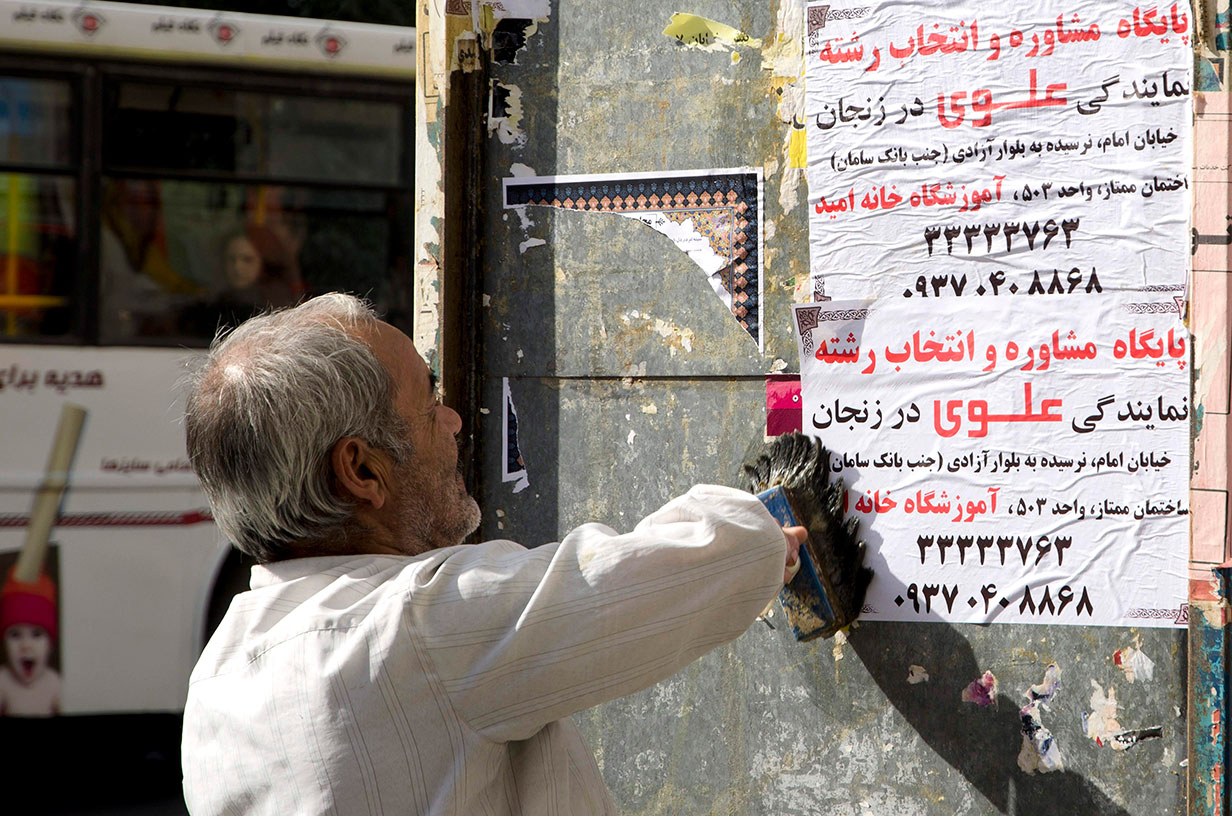 پایگاه مشاوره و انتخاب رشته
نمایندگی علوی در زنجان
خیابان امام، نرسیده به بلوار آزادی (جنب بانک سامان)
ساختمان ممتاز، واحد ۵۰۳، آموزشگاه خانه امید
۳۳۳۳۳۷۶۳
۰۹۳۷ ۰۴۰ ۸۸۶۸
پایگاه مشاوره و انتخاب رشته
نمایندگی علوی در زنجان
خیابان امام، نرسیده به بلوار آزادی (جنب بانک سامان)
ساختمان ممتاز، واحد ۵۰۳، آموزشگاه خانه ا
۳۳۳۳۳۷۶۳
۰۹۳۷ ۰۴۰ ۸۸۶۸
هدیه برای